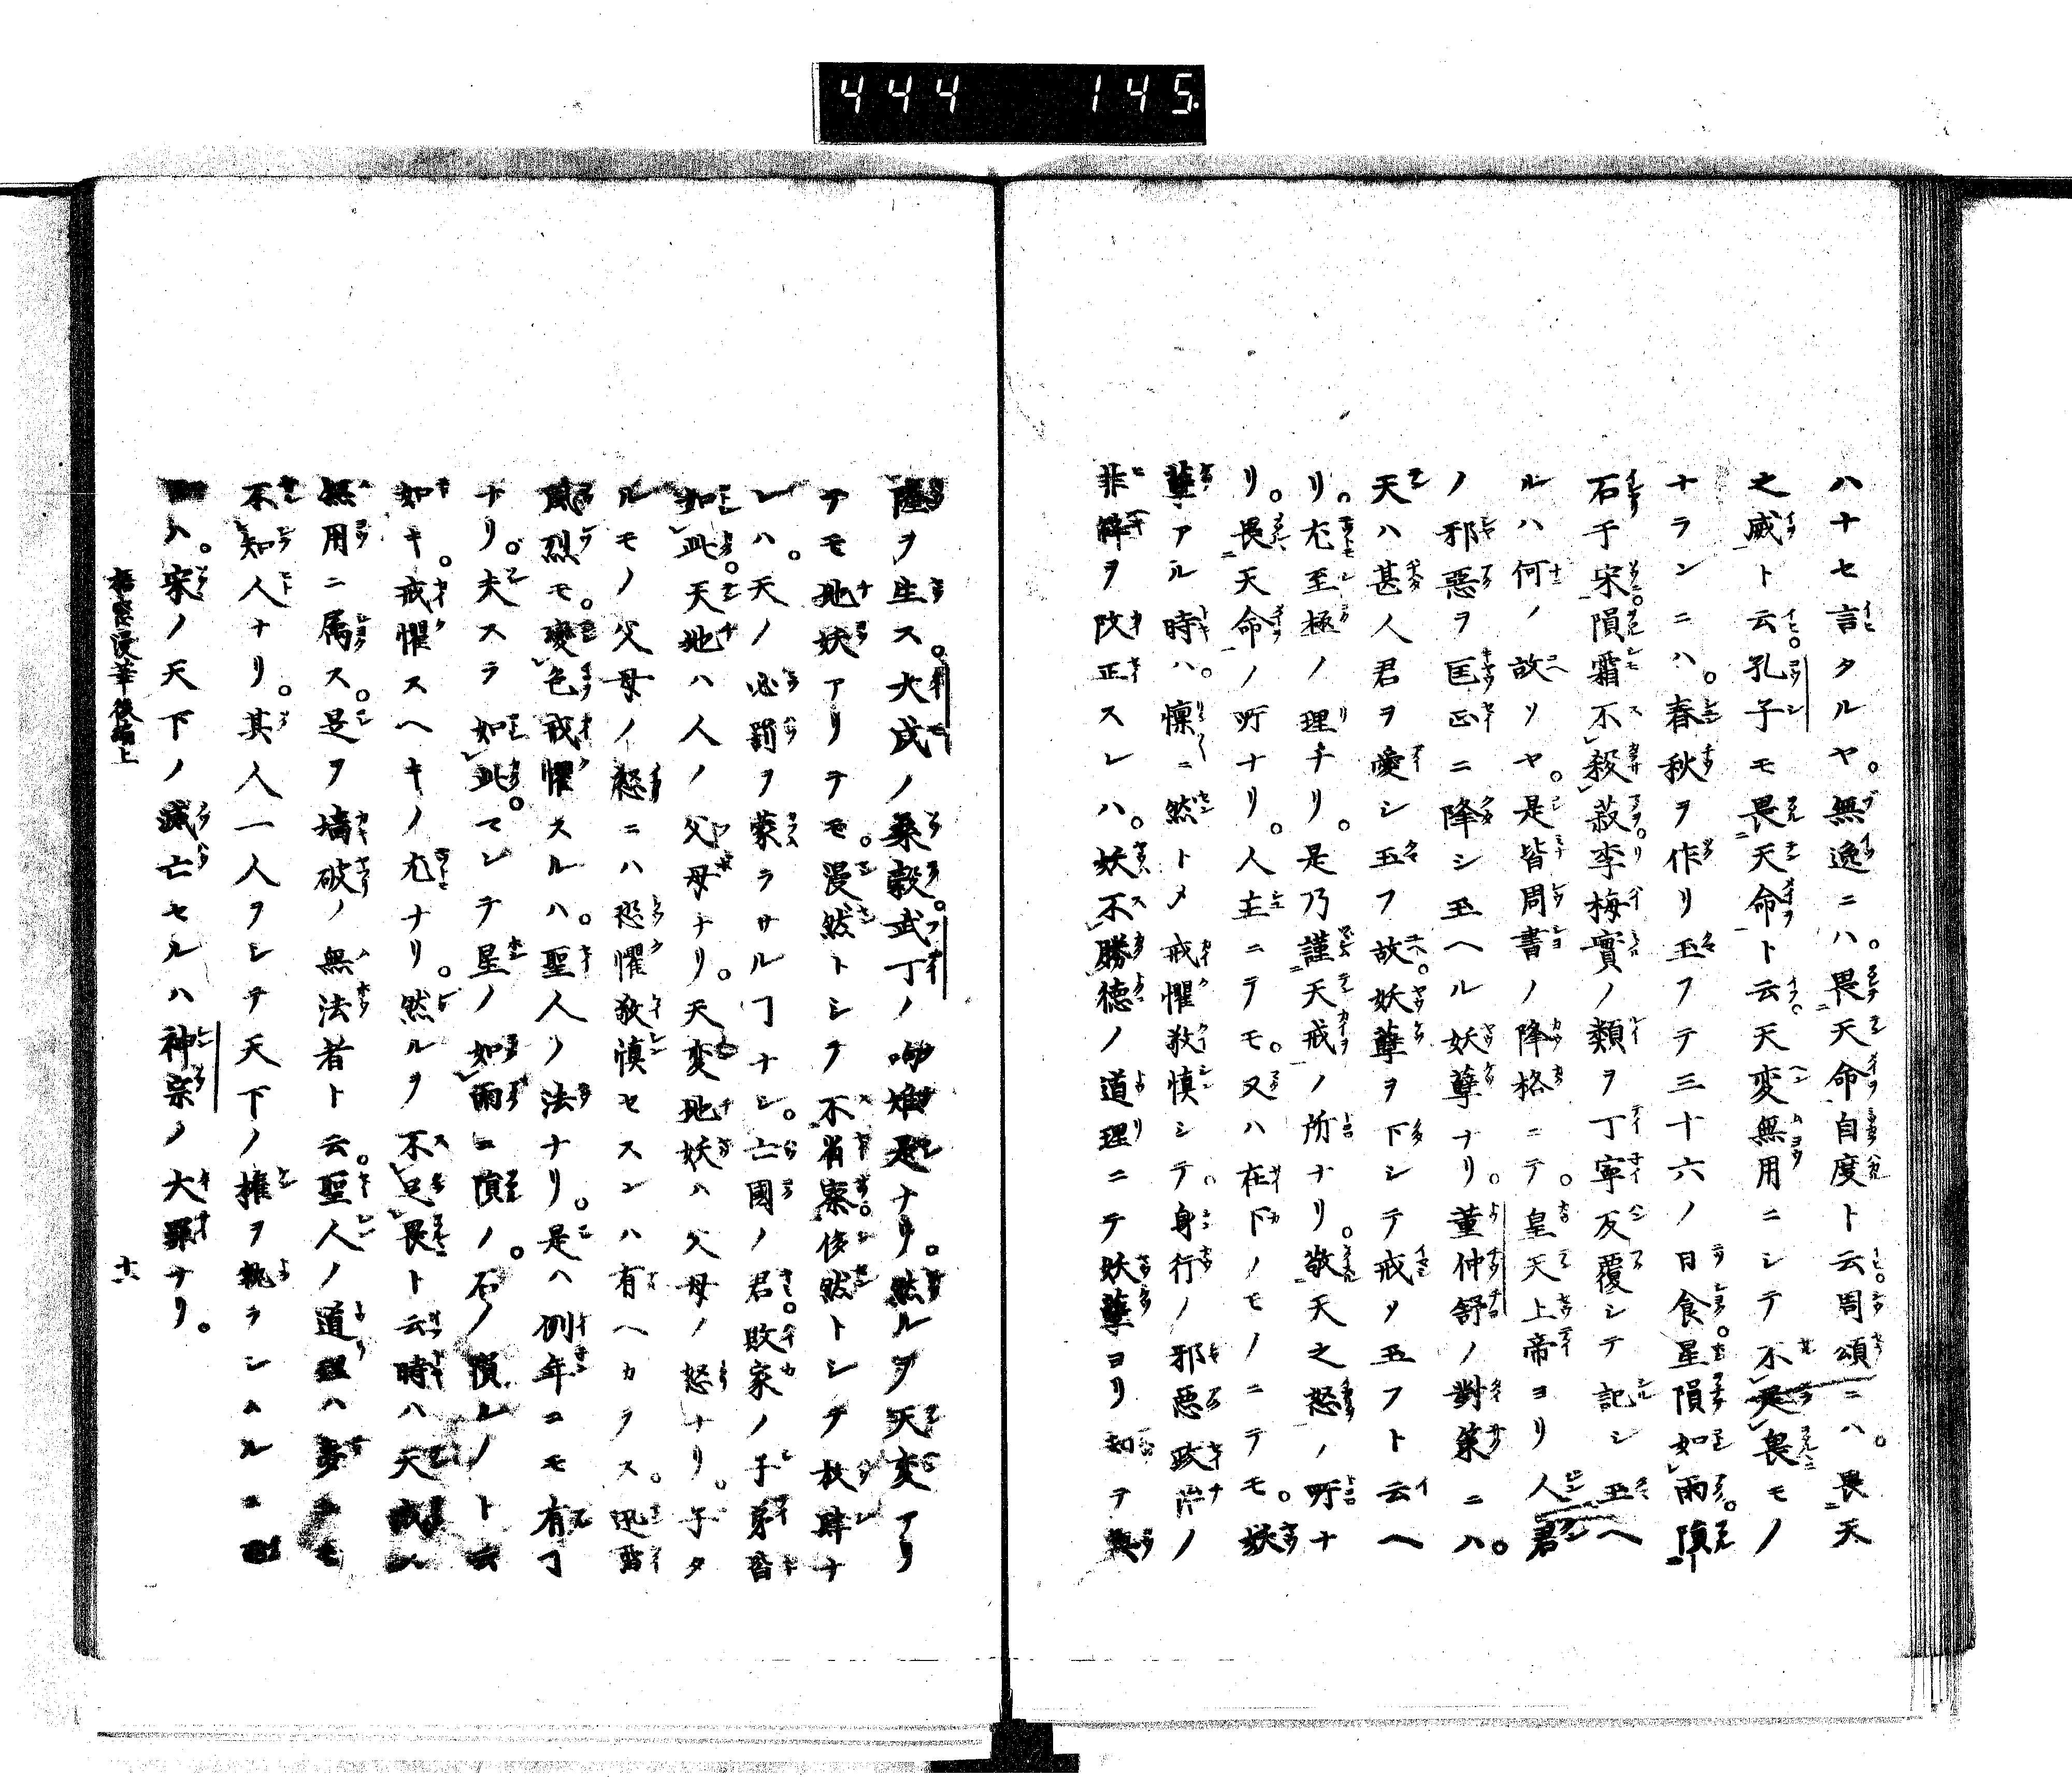 444 145
ハナセ言タルヤ。無逸ニハ。畏天命自度ト云。周頌ニハ。畏天
之威ト云。孔子モ畏天命ト云。天変無用ニシテ不足畏モノ
ナランニハ。春秋ヲ作リ玉フテ三十六ノ日食星隕如雨。隕
石于宋。隕霜不殺菽。李梅實ノ類ヲ丁寧反覆シテ記シ玉ヘ
ルハ何ノ故ソヤ。是皆周書ノ降格ニテ。皇天上帝ヨリ人君
ノ邪惡ヲ匡正ニ降シ玉ヘル妖孽ナリ。董仲舒ノ對策ニハ。
天ハ甚人君ヲ愛シ玉フ故。妖孽ヲ下シテ戒メ玉フト云ヘ
リ。尤至極ノ理ナリ。是乃謹天戒ノ所ナリ。敬天之怒ノ所ナ
リ。畏天命ノ所ナリ。人主ニテモ。又ハ在下ノモノニテモ。妖
孽アル時ハ。懍々ニ然トメ戒懼敬慎シテ。身行ノ邪惡政ノ
非ヲ改正スレハ。妖不勝德ノ道理ニテ妖孽ヨリ却テ
ヲ生ス。大戊ノ桑穀。武丁ノ雊雉是ナリ。然ルヲ天変アリ
テモ地妖アリテモ。漫然トシテ不省察。侈然トシテ放肆ナ
レハ。天ノ必罰ヲ蒙ラサルヿナシ。亡國ノ君。敗家ノ子弟皆
如此。天地ハ人ノ父母ナリ。天変地妖ハ父母ノ怒ナリ。子タ
ルモノ父母ノ怒ニハ恐懼敬慎セスンハ有ヘカラス。迅雷
風烈モ。變色戒懼スルハ。聖人ノ法ナリ。是ハ例年ニモ有ヿ
ナリ。夫スラ如此。マシテ星ノ如雨ニ隕ノ。石ノ隕レノト云
如キ。戒懼スヘキノ尤ナリ。然ルヲ不足畏ト云時ハ天戒ハ
無用ニ属ス。是ヲ墻破ノ無法者ト云。聖人ノ道理ハ夢ニモ
不知人ナリ。其人一人ヲシテ天下ノ權ヲ執ラシムルニ
ハ。宋ノ天下ノ滅亡セルハ神宗ノ大罪ナリ。
梧窓漫筆後編上 十六